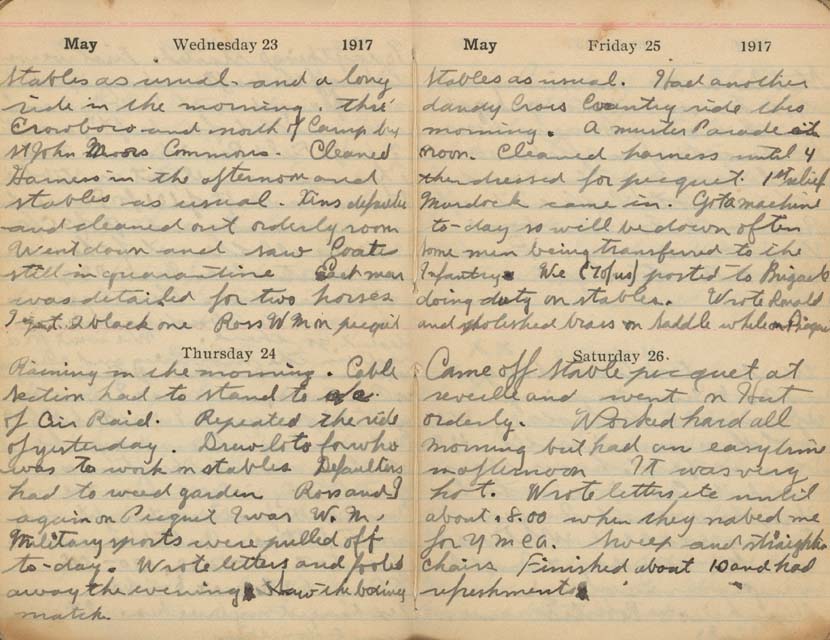 May Wednesday 23 1917
Stables as usual and a long
ride in the morning. thro'
Crowboro and north of Camp by
St John Moors Commons. Cleaned
Harness in the afternoon and
stables as usual.
and cleaned out orderly room
Went down and saw Coats
still in quarantine Each man
was detailed for two horses
I got 2 black one Ross W M on picquit
Thursday 24
Raining in the morning. Cable
section had to stand to a/c
of Air Raid. Repeated the ride
of yesterday. Drew lots for who
was to work on stables Defaulters
had to weed garden Ross and I
again on Picquet I was W. M.
Military sports were pulled off
to-day. Wrote letters and fooled
away the evening Saw the boxing
match
May Friday 25 1917
Stables as usual. Had another
dandy Cross Country ride this
morning. A muster Parade at
noon. Cleaned harness until 4
then dressed for picquet. 1st relief
Murdock came in. Got a machine
to-day so will be down often
some men being transferred to the
Infantry. We (70 of us) posted to Brigade
doing duty on stables. Wrote Ronald
and polished brass on saddle while on Picquet
Saturday 26.
Came off stable picquet at
reveille and went on Hut
orderly. Worked hard all
morning but had an easy time
in afternoon It was very
hot. Wrote letters etc until
about 8.00 when they nabed me
for Y M C A. Sweep and straighten
chairs Finished about 10 and had
refreshments